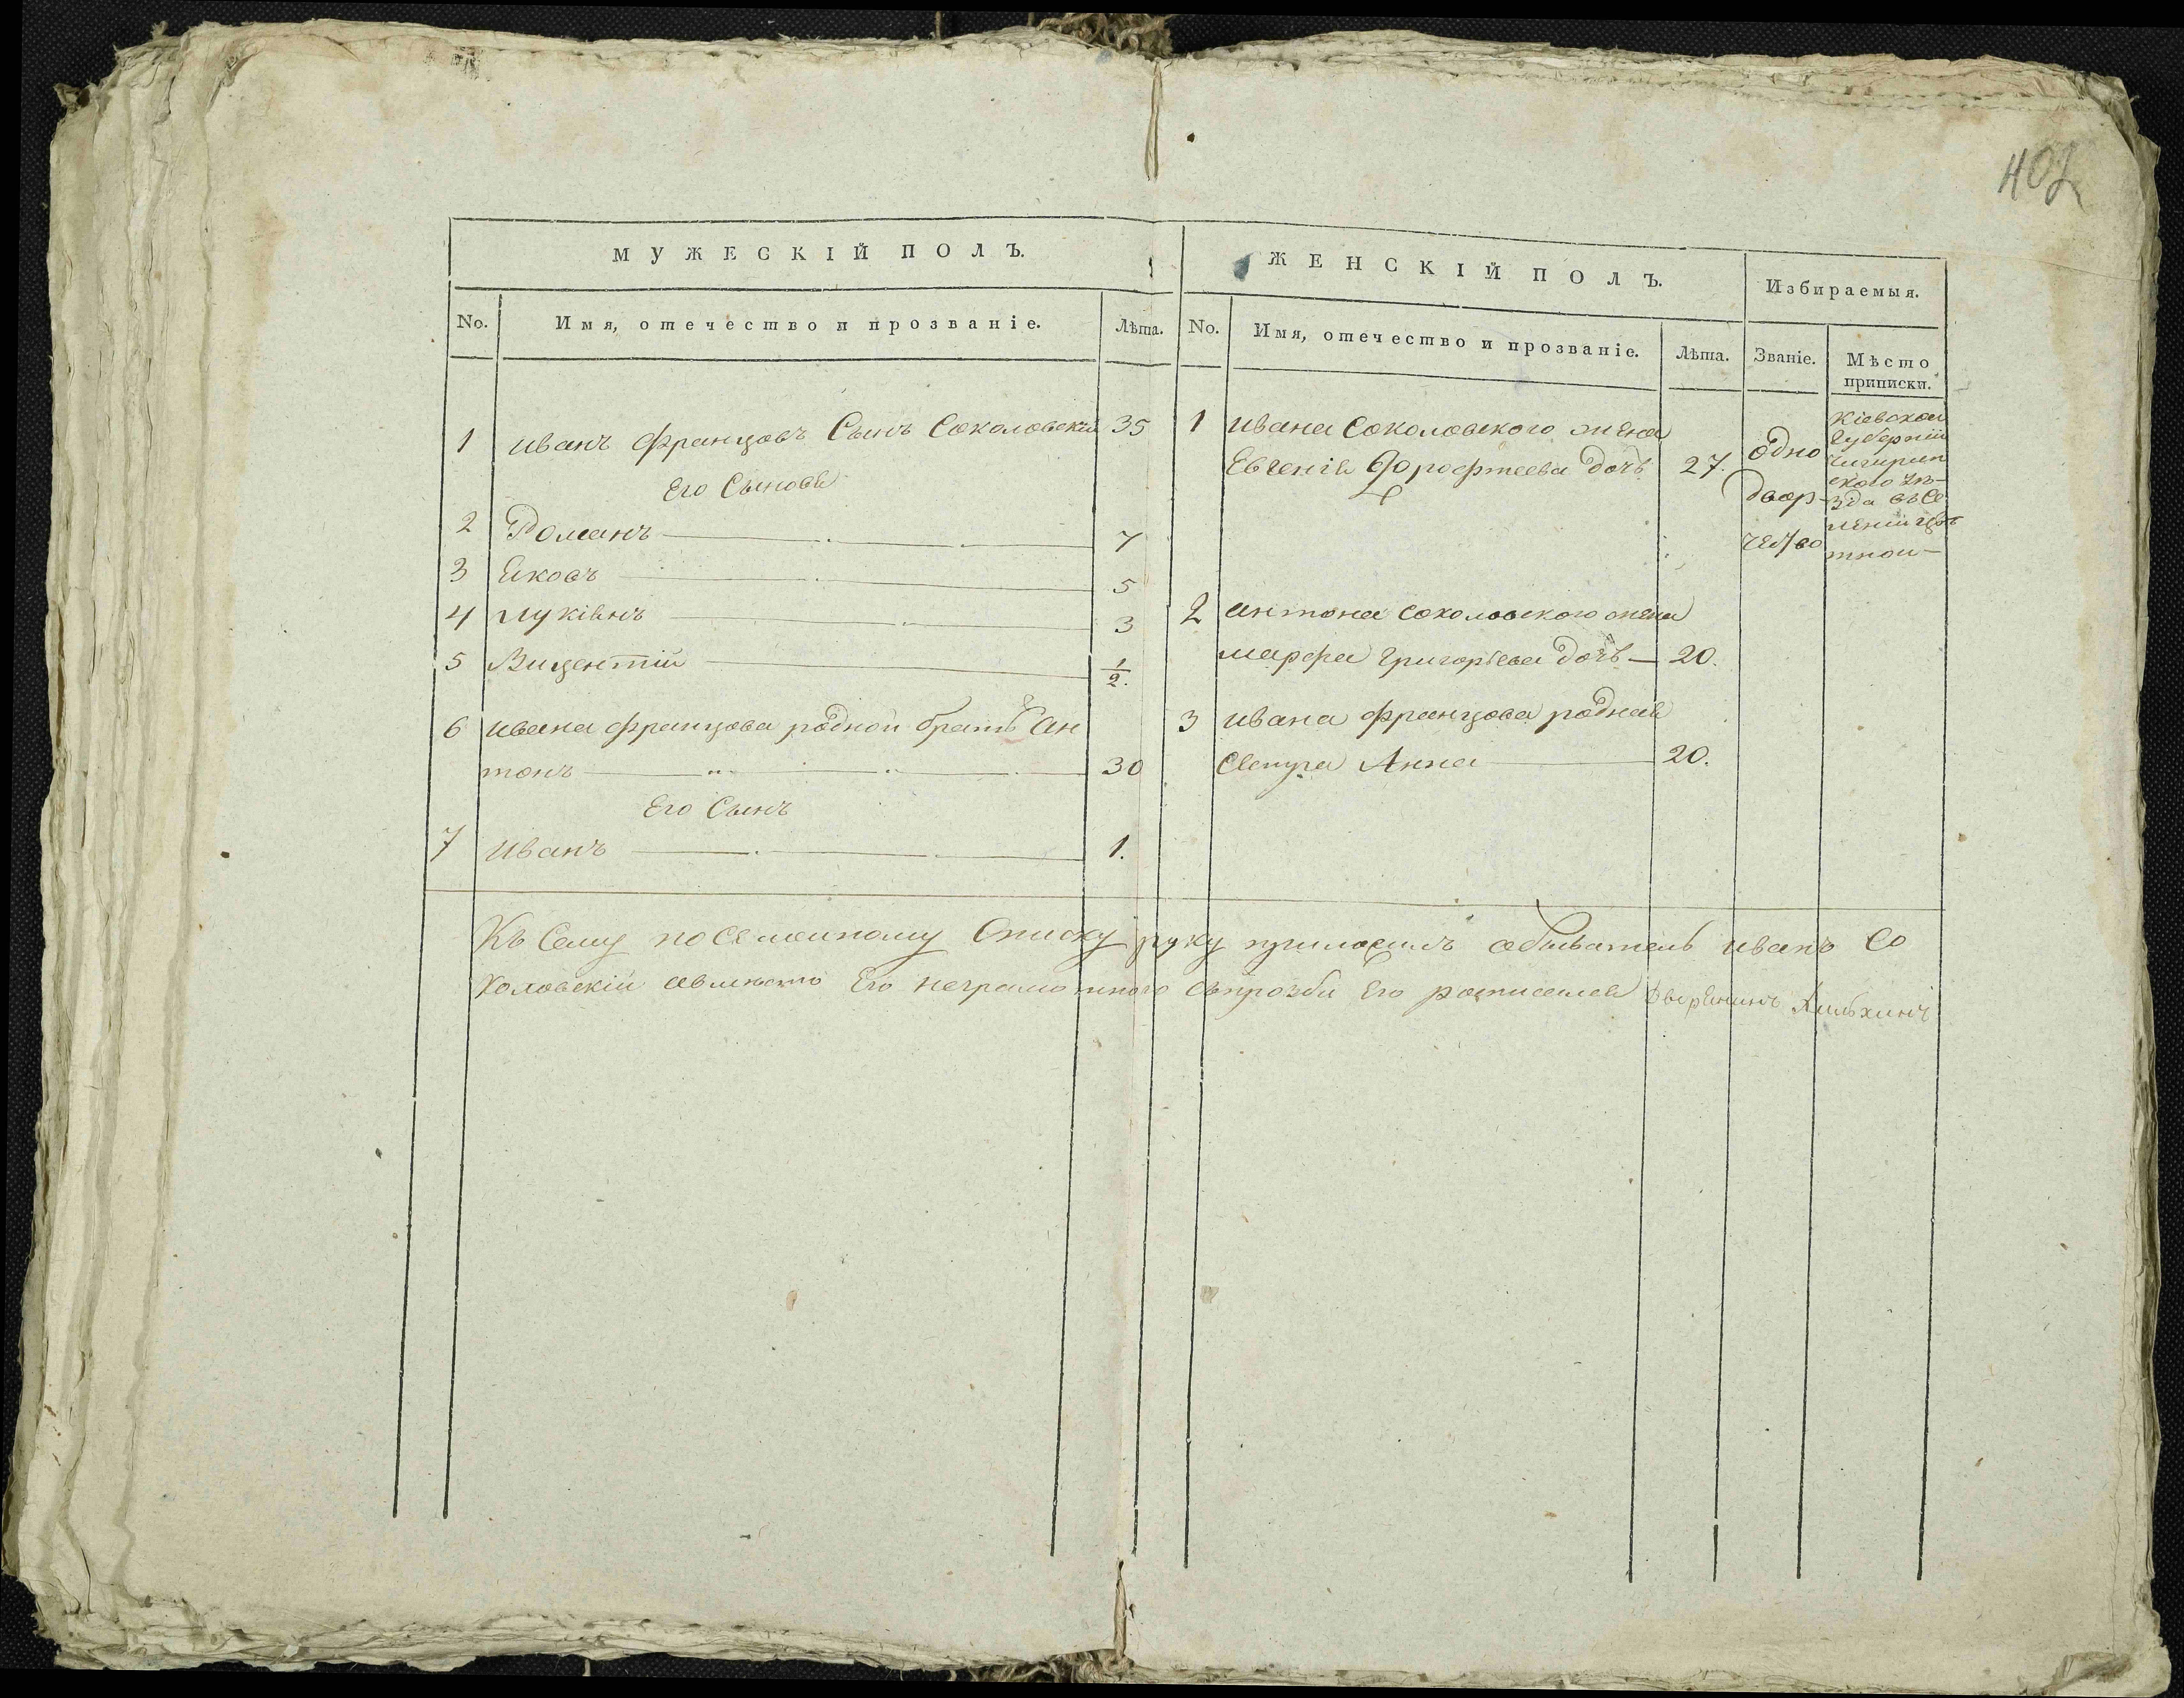 402
МУЖЕСКІЙ ПОЛЪ.
ЖЕНСКІЙ ПОЛЪ.
Избираемыя.
No. Имя, отечество и прозваніе. Лѣта.
No. Имя, отечество и прозваніе. Лѣта. Званіе. Мѣсто
приписки.
1 Иванъ Францовъ Сынъ Соколовскій 35
Его Сыновья
2 Романъ 7
3 Яковъ 5
4 Лукіянъ 3
5 Вицентій 1/2.
6 Ивана Францова родной братъ Ан
тонъ 30
Его Сынъ
7 Иванъ 1.
1 Ивана Соколовского жена
Евгенія Дорофтеева дочь 27.
2 Антона Соколовского жена
Марфа Григорьева дочь 20.
3 Ивана Францова родная
Сестра Анна 20.
Одно
двор
чество
Кіевской
Губерніи
Чигирин
ского уѣ
зда въ се
леніи
Къ Сему посемейному Списку руку приложилъ обыватель Иванъ Со
коловскій а вмѣсто Его неграмотного Спрозбы Его росписался Дворянинъ